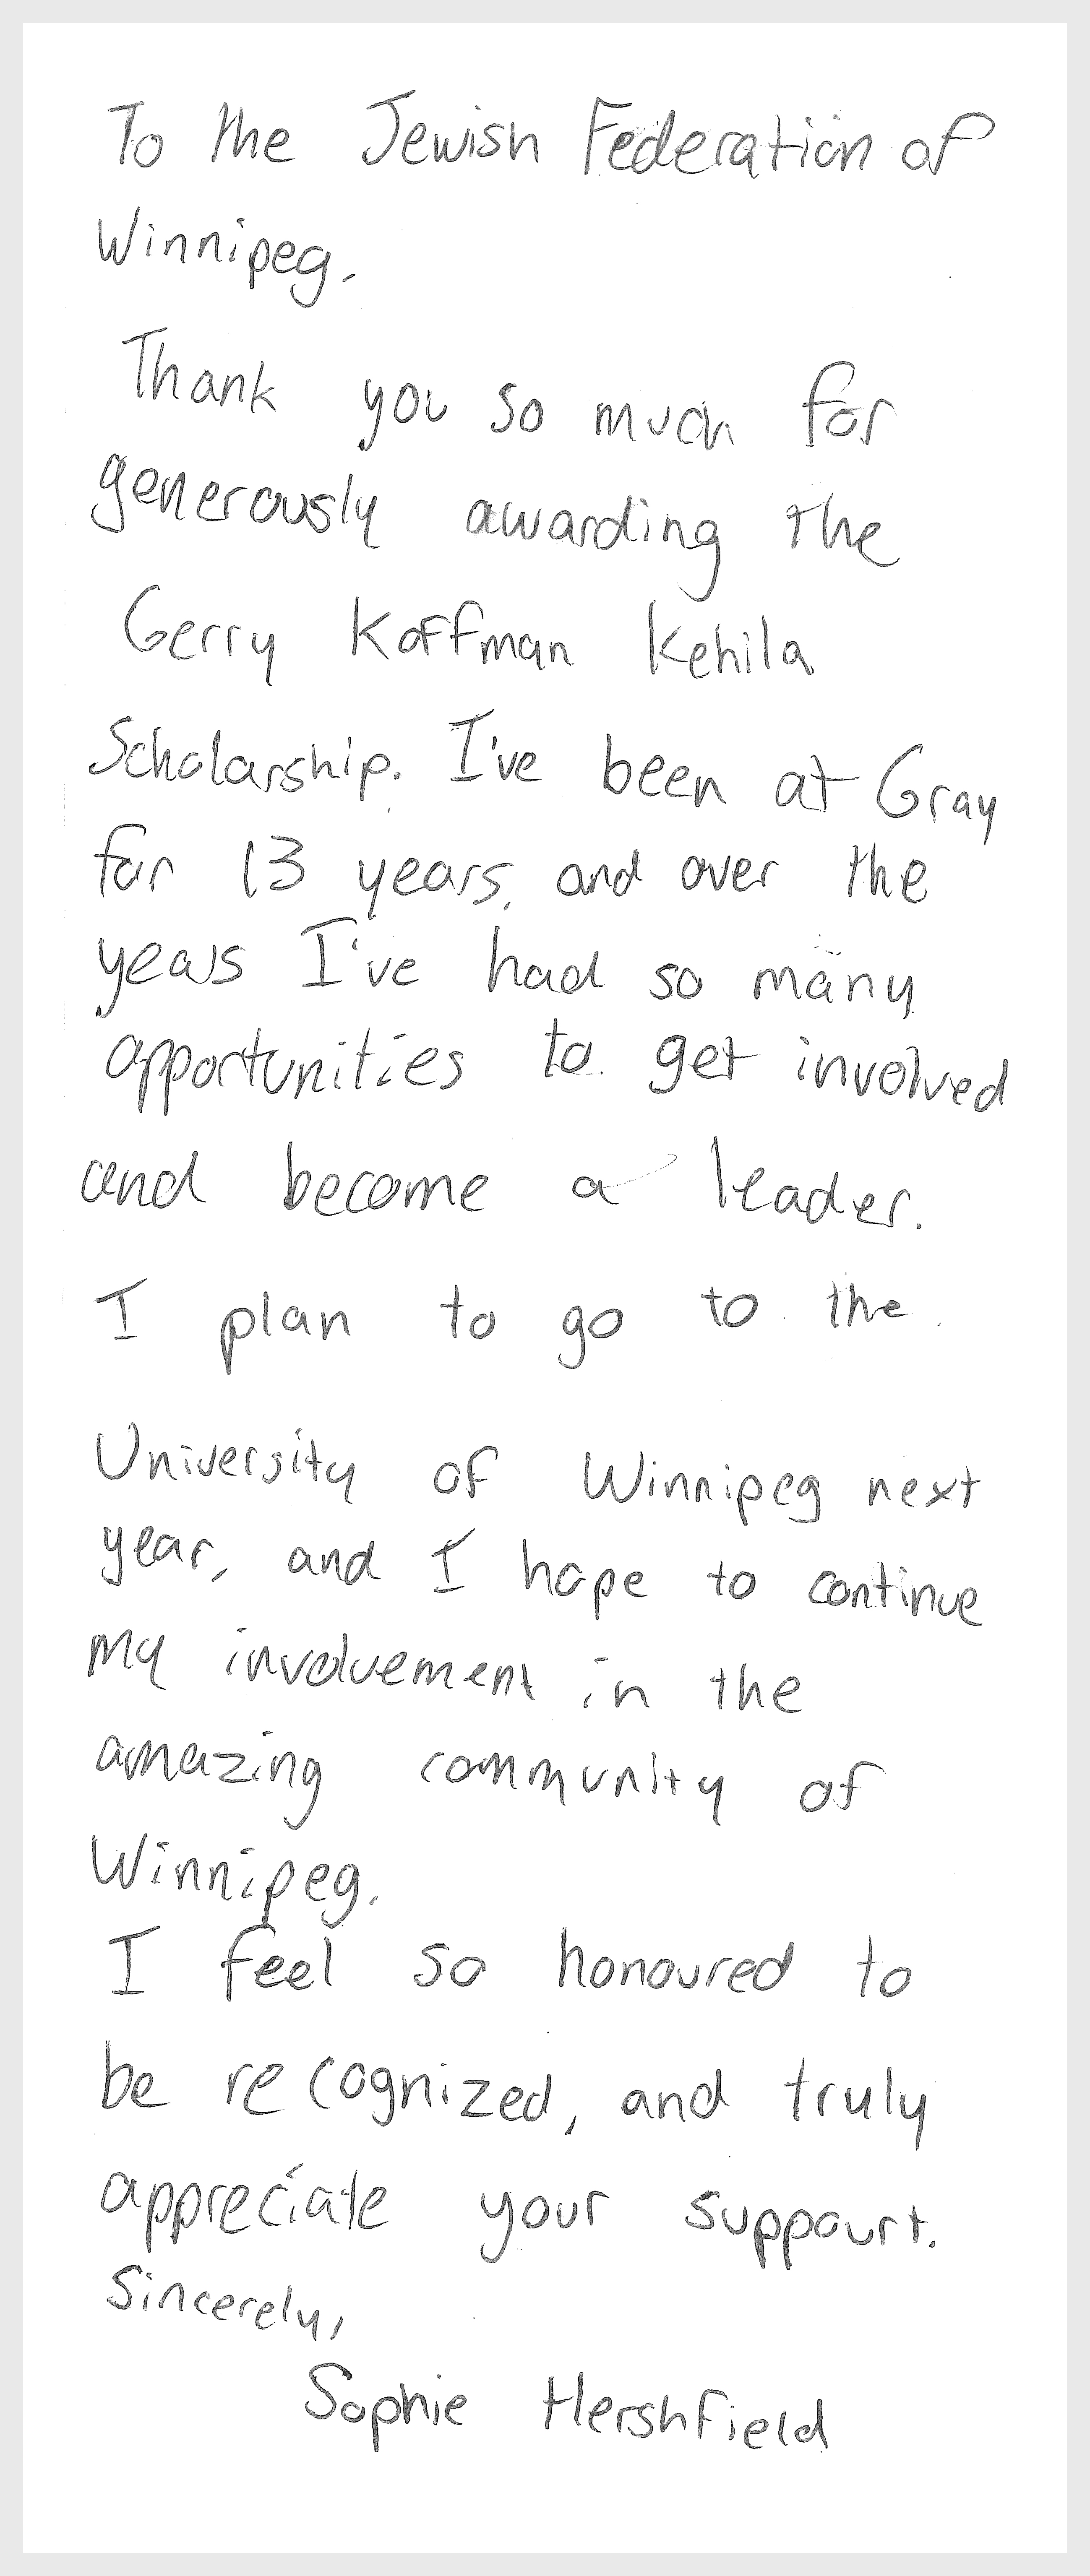 To the Jewish Federation of
Winnipeg.
Thank you so much for
generously awarding the
Gerry Koffman Kehila
Scholarship. I've been at Gray
for 13 years, and over the
years I've had so many
opportunities to get involved
and become a leader.
I plan to go to the
University of Winnipeg next
year, and I hope to continue
my involvement in the
amazing community of
Winnipeg.
I feel so honoured to
be recognized, and truly
appreciate your suppourt.
Sincerely,
Sophie Hershfield